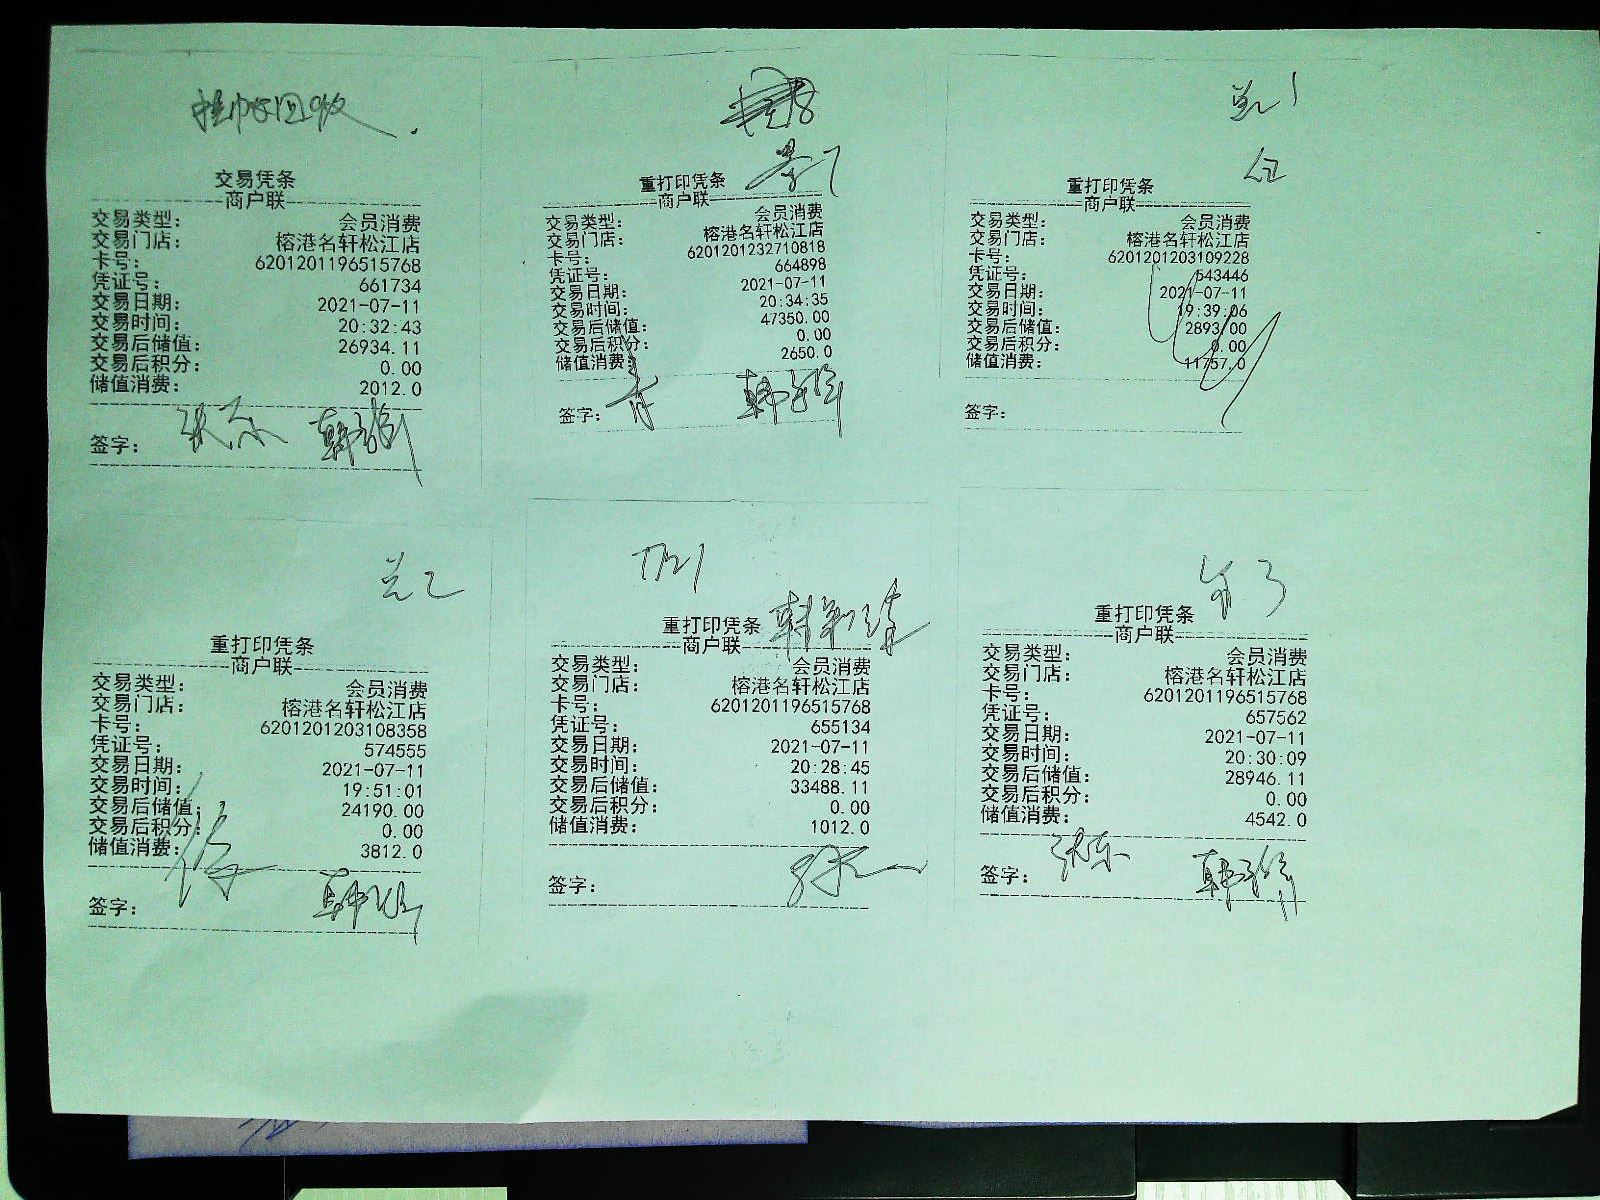 挂帐回收
交易凭条
商户联
交易类型： 会员消费
交易门店： 榕港名轩松江店
卡号： 6201201196515768
凭证号： 661734
交易日期： 2021-07-11
交易时间： 20:32:43
交易后储值： 26934.11
交易后积分： 0.00
储值消费： 2012.0
签字：
重打印凭条
商户联
交易类型： 会员消费
交易门店： 榕港名轩松江店
卡号： 6201201232710818
凭证号： 664898
交易日期： 2021-07-11
交易时间： 20:34:35
交易后储值： 47350.00
交易后积分： 0.00
储值消费： 2650.0
签字：
重打印凭条
商户联
交易类型： 会员消费
交易门店： 榕港名轩松江店
卡号： 6201201203109228
凭证号： 543446
交易日期： 2021-07-11
交易时间： 19:39:06
交易后储值： 2893.00
交易后积分： 0.00
储值消费： 11757.0
签字：
重打印凭条
商户联
交易类型： 会员消费
交易门店： 榕港名轩松江店
卡号： 6201201203108358
凭证号： 574555
交易日期： 2021-07-11
交易时间： 19:51:01
交易后储值： 24190.00
交易后积分： 0.00
储值消费： 3812.0
签字：
重打印凭条
商户联
交易类型： 会员消费
交易门店： 榕港名轩松江店
卡号： 6201201196515768
凭证号： 655134
交易日期： 2021-07-11
交易时间： 20:28:45
交易后储值： 33488.11
交易后积分： 0.00
储值消费： 1012.0
签字：
重打印凭条
商户联
交易类型： 会员消费
交易门店： 榕港名轩松江店
卡号： 6201201196515768
凭证号： 657562
交易日期： 2021-07-11
交易时间： 20:30:09
交易后储值： 28946.11
交易后积分： 0.00
储值消费： 4542.0
签字：